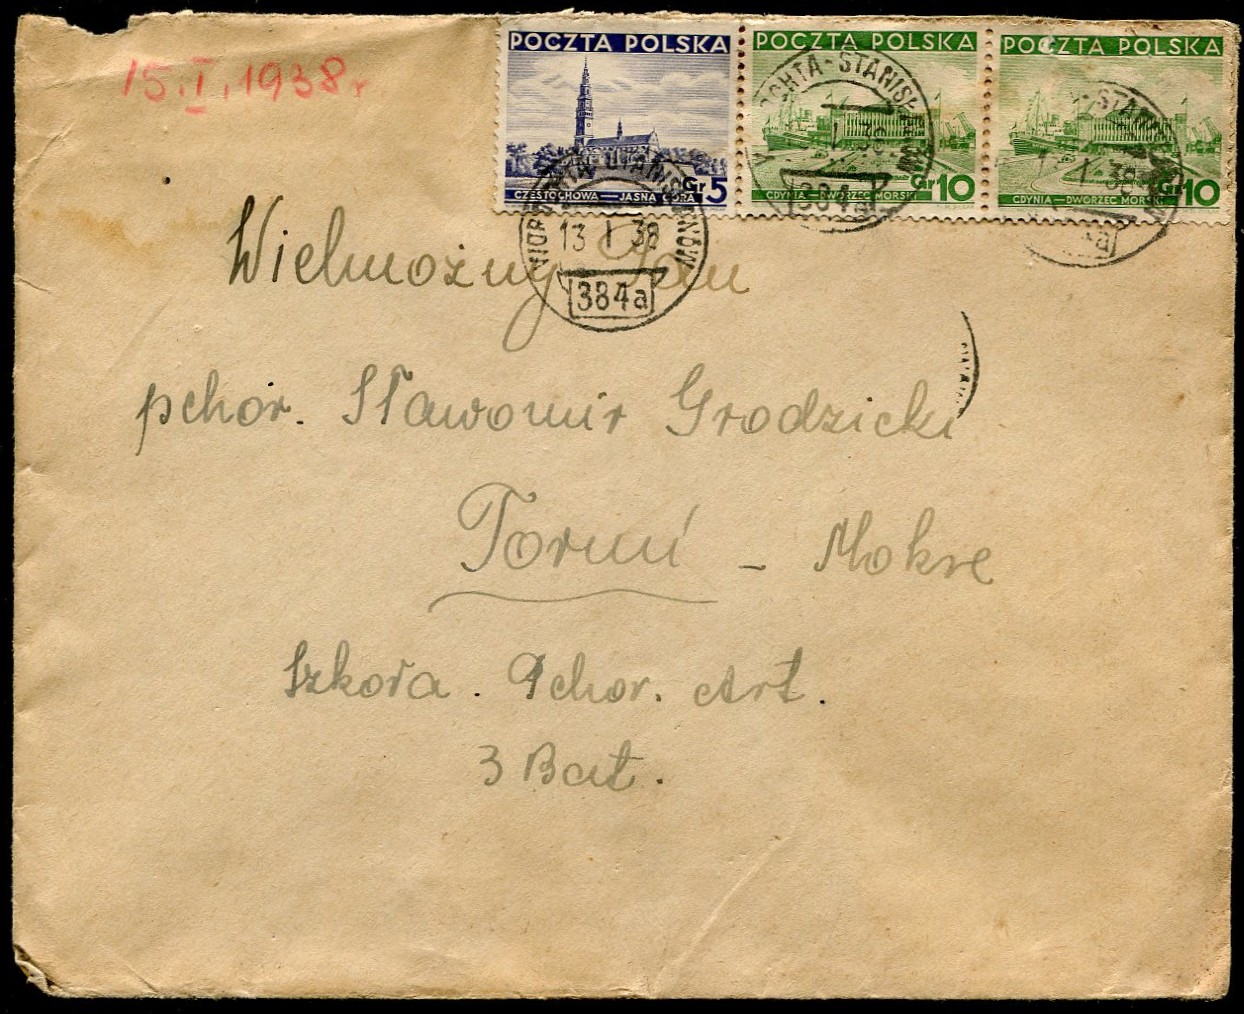 15.I.1938r
POCZTA POLSKA
CZĘSTOCHOWA — JASNA GÓRA Gr 5
POCZTA POLSKA
GDYNIA — DWORZEC MORSKI Gr 10
POCZTA POLSKA
GDYNIA — DWORZEC MORSKI Gr 10
13 I 38
384a
Wielmożny Pan
pchor. Sławomir Grodzicki
Toruń - Mokre
Szkoła. Pchor. Art.
3 Bat.